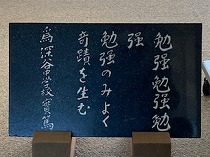 勉強勉強勉
強
勉強のみよく
奇蹟を生む
為深谷中学校 實篤